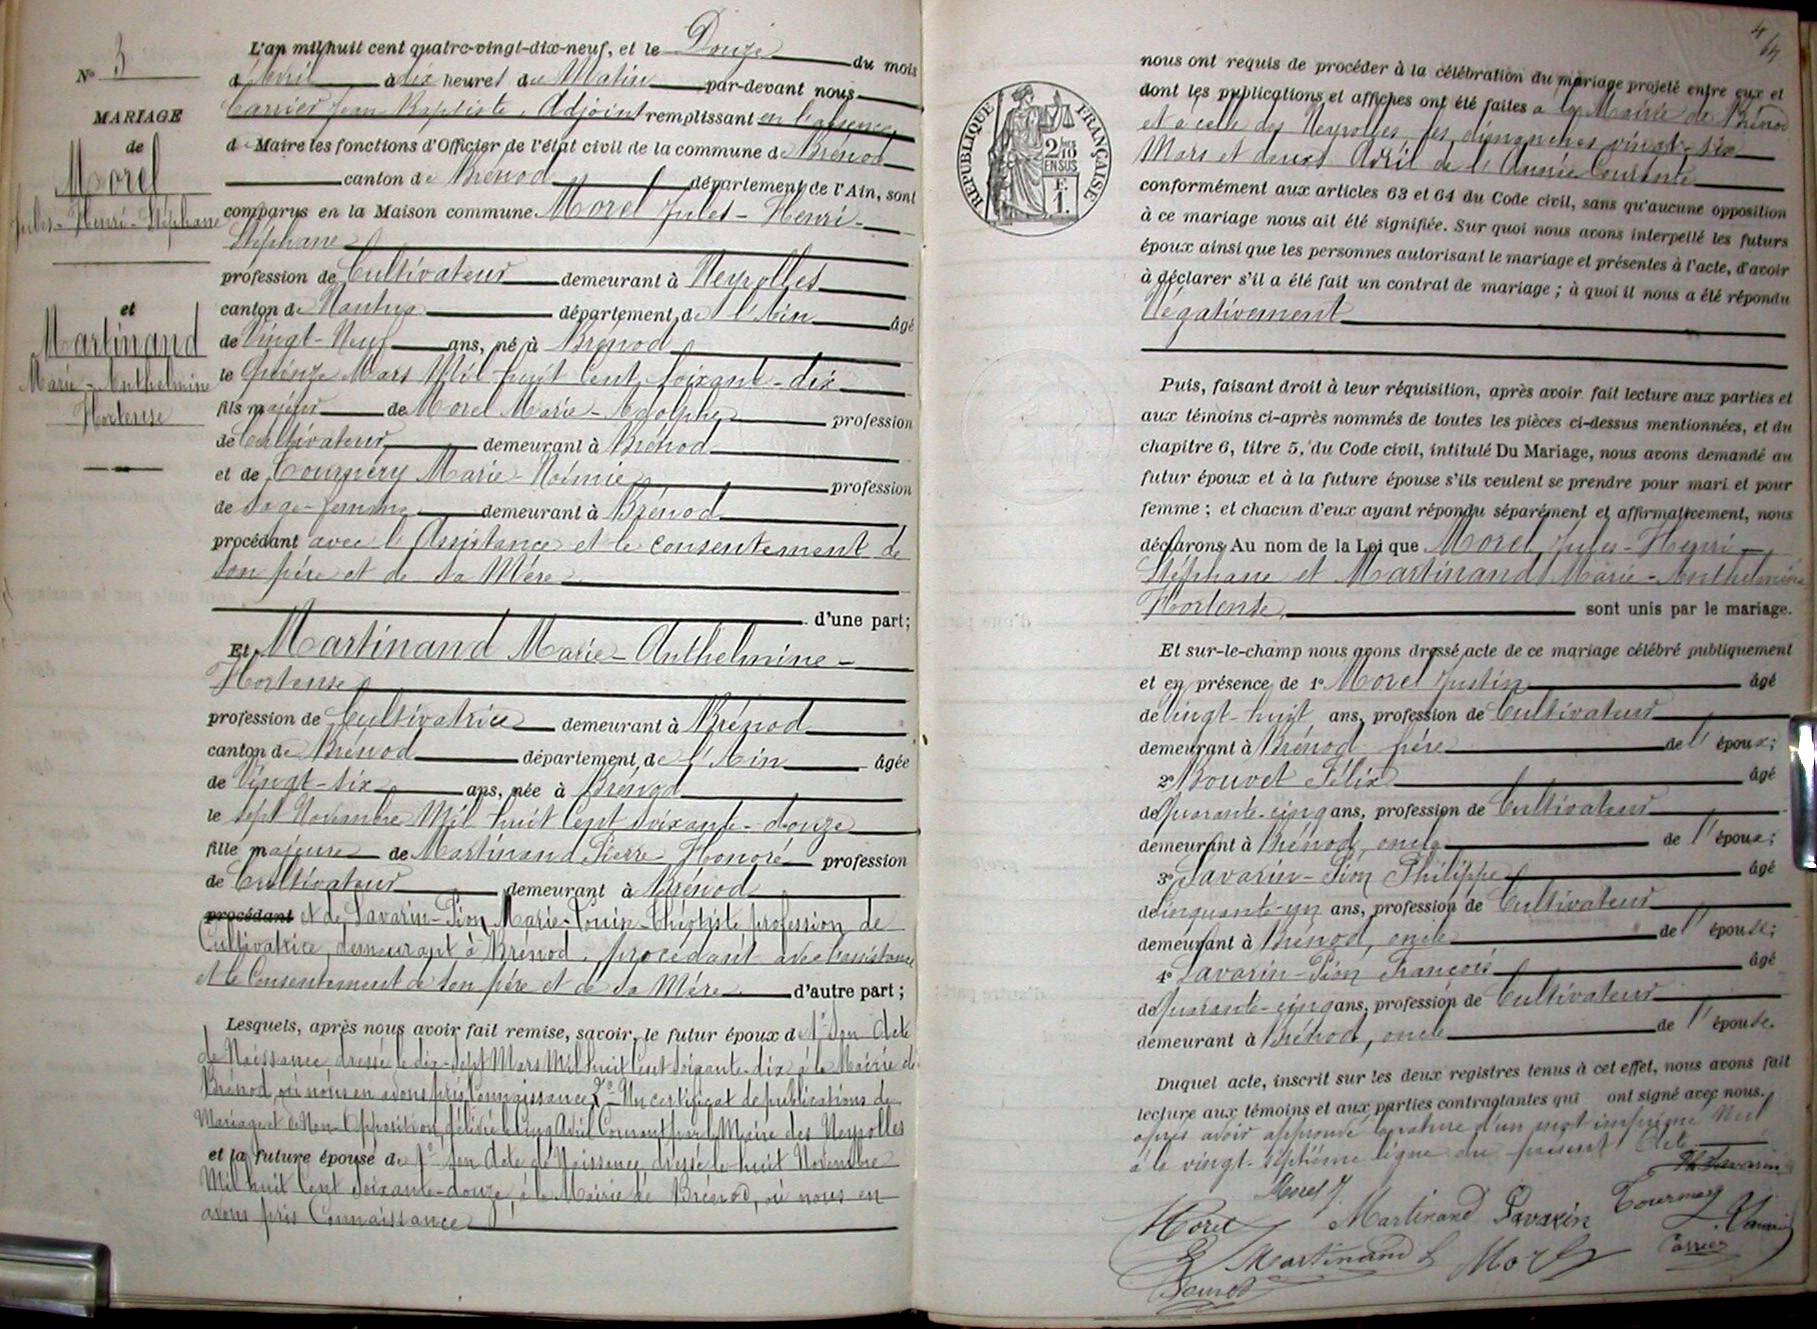 N° 3
MARIAGE
de
Morel
Jules-Henri-Stéphane
et
Martinand
Marie-Anthelmine
Hortense
L'an mil huit cent quatre-vingt-dix-neuf, et le Douze du mois
d'Avril à dix heures du Matin par-devant nous
Carrier Jean-Baptiste, Adjoint remplissant en l'absence
d Maire les fonctions d'Officier de l'état civil de la commune de Brénod
canton de Brénod département de l'Ain, sont
comparus en la Maison commune Morel Jules-Henri-
Stéphane
profession de Cultivateur demeurant à Neyrolles
canton de Nantua département de l'Ain âgé
de Vingt-Neuf ans, né à Brénod
le Quinze Mars Mil huit Cent soixante-dix
fils majeur de Morel Marie-Adolphe profession
de Cultivateur demeurant à Brénod
et de Tournery Marie-Noémie profession
de Sage-femme demeurant à Brénod
procédant avec l'Assistance et le consentement de
son père et de sa Mère
d'une part;
Et Martinand Marie-Anthelmine-
Hortense
profession de Cultivatrice demeurant à Brénod
canton de Brénod département de l'Ain âgée
de Vingt-six ans, née à Brénod
le sept Novembre Mil huit Cent soixante-douze
fille majeure de Martinand Pierre Honoré profession
de Cultivateur demeurant à Brénod
procédant et de Savarin-Pion Marie-Louise-Théotiste profession de
Cultivatrice, demeurant à Brénod, procédant avec l'assistance
et le Consentement de son père et de sa Mère d'autre part;
Lesquels, après nous avoir fait remise, savoir, le futur époux d 1° Son Acte
de Naissance, dressé le dix-sept Mars Mil huit Cent Soixante-dix à la Mairie de
Brénod, où nous en avons pris Connaissance, 2° Un certificat de publications de
Mariage et de Non-Opposition, délivré le Cinq Avril Courant par le Maire des Neyrolles
et la future épouse de 1° Son Acte de Naissance, dressé le huit Novembre
Mil huit Cent Soixante-douze, à la Mairie de Brénod, où nous en
avons pris Connaissance
4
REPUBLIQUE FRANÇAISE
2/10
EN SUS
F.
1.
nous ont requis de procéder à la célébration du mariage projeté entre eux et
dont les publications et affiches ont été faites à la Mairie de Brénod
et à celle des Neyrolles, les dimanches vingt-six
Mars et deux Avril de l'Année Courante
conformément aux articles 63 et 64 du Code civil, sans qu'aucune opposition
à ce mariage nous ait été signifiée. Sur quoi nous avons interpellé les futurs
époux ainsi que les personnes autorisant le mariage et présentes à l'acte, d'avoir
à déclarer s'il a été fait un contrat de mariage; à quoi il nous a été répondu
Négativement
Puis, faisant droit à leur réquisition, après avoir fait lecture aux parties et
aux témoins ci-après nommés de toutes les pièces ci-dessus mentionnées, et du
chapitre 6, titre 5, du Code civil, intitulé Du Mariage, nous avons demandé au
futur époux et à la future épouse s'ils veulent se prendre pour mari et pour
femme; et chacun d'eux ayant répondu séparément et affirmativement, nous
déclarons Au nom de la Loi que Morel Jules-Henri-
Stéphane et Martinand Marie-Anthelmine
Hortense, sont unis par le mariage.
Et sur-le-champ nous avons dressé acte de ce mariage célébré publiquement
et en présence de 1° Morel Justin âgé
de Vingt-huit ans, profession de Cultivateur
demeurant à Brénod frère de l'époux;
2° Bouvet Félix âgé
de Quarante-cinq ans, profession de Cultivateur
demeurant à Brénod, oncle de l'époux;
3° Savarin-Pion Philippe âgé
de Cinquante-un ans, profession de Cultivateur
demeurant à Brénod, oncle de l'épouse;
4° Savarin-Pion François âgé
de Quarante-cinq ans, profession de Cultivateur
demeurant à Brénod, oncle de l'épouse.
Duquel acte, inscrit sur les deux registres tenus à cet effet, nous avons fait
lecture aux témoins et aux parties contractantes qui ont signé avec nous.
après avoir approuvé la rature d'un mot imprimé Nul
à la vingt-septième ligne du présent Acte
Ph Savarin
Morel J.
Morel Martinand Savarin Tournery
Martinand Morel Carrier
Bouvet